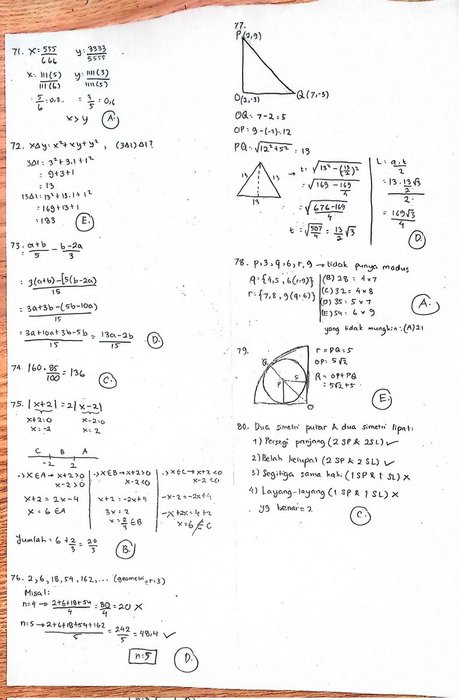 71. x = 555/666  y: 3333/5555
x: 111(5)/111(6)  y: 1111(3)/1111(5)
: 5/6 : 0,8..  : 3/5 = 0,6
x > y  A.
72. x∆y: x²+xy+y², (3∆1)∆1?
3∆1: 3²+3.1+1²
= 9+3+1
= 13
13∆1: 13²+13.1+1²
= 169+13+1
= 183  E.
73. (a+b)/5 - (b-2a)/3
: (3(a+b)-[5(b-2a))/15
: (3a+3b-(5b-10a))/15
: (3a+10a+3b-5b)/15 = (13a-2b)/15  D.
74. 160.85/100 = 136  C.
75. |x+2| = 2|x-2|
x+2=0  x-2=0
x=-2  x=2
C B A
-2 2
x∈A → x+2>0
x-2>0
x+2 = 2x-4
x = 6 ∈A
x∈B → x+2>0
x-2<0
x+2 = -2x+4
3x = 2
x = 2/3 ∈B
x∈C → x+2<0
x-2<0
-x-2 = -2x+4
-x+2x = 4+2
x = 6 ∉ C
Jumlah = 6 + 2/3 = 20/3  B.
76. 2,6,18,54,162,... (geometri, r=3)
Misal:
n=4 → (2+6+18+54)/4 = 80/4 = 20 X
n=5 → (2+6+18+54+162)/5 = 242/5 = 48,4 ✓
n=5  D.
77.
P(2,9)
O(2,-3)  Q(7,-3)
OQ = 7-2 = 5
OP: 9-(-3)=12
PQ = √12²+5² = 13
13 13
13
t = √13²-(13/2)²
= √169-169/4
= √(676-169)/4
t = √507/4 = 13/2 √3
L: a.t/2
= 13.13/2 √3/2
= 169√3/4
D.
78. p,3,q,6,r,9 → tidak punya modus
q = {4,5,6(r=9)}
r = {7,8,9(q=6)}
(B) 28 = 4x7
(C) 32 = 4x8
(D) 35 = 5x7
(E) 54 = 6x9
A.
yang tidak mungkin: (A) 21
79.
Q P 5 O
r = PQ = 5
OP = 5√2
R = OP+PQ
= 5√2+5
E.
80. Dua simetri putar & dua simetri lipat:
1) Persegi panjang (2 SP & 2SL) ✓
2) Belah ketupat (2 SP & 2 SL) ✓
3) Segitiga sama kaki (1 SP & 1 SL) X
4) Layang-layang (1 SP & 1 SL) X
yg benar = 2
C.